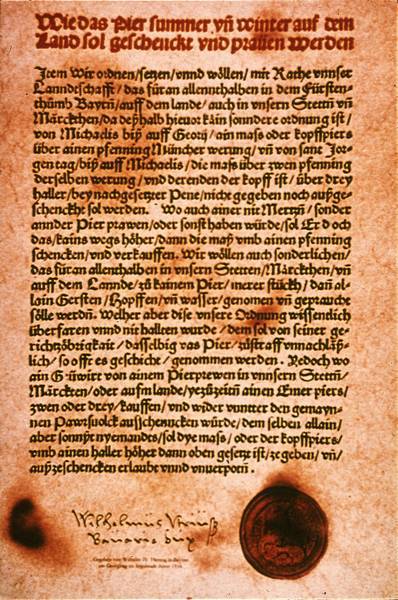 Wie das Pier summer vñ winter auf dem
Land sol geschenckt vnd prauen werden
Item Wir ordnen/ setzen/ vnnd wöllen/ mit Rathe vnnser
Lanndtschafft/ das für an allennthalben in dem Fürsten-
thůmb Bayrn/ auff dem lande/ auch in vnsern Stettn vñ
Märckthen/ da deßhalb hieuor kain sonndere ordnung ist/
von Michaelis biß auff Georij/ ain mass oder kopffpiers
über ainen pfenning Müncher werung/ vñ von sant Jor-
gen tag/ biß auff Michaelis/ die mass über zwen pfenning
derselben werung/ vnd derenden der kopff ist/ über drey
haller/ bey nachgesetzter Pene/ nicht gegeben noch außge-
schenckht sol werden. Wo auch ainer nit Mertzn/ sonder
annder Pier prawen/ oder sonst haben würde/ sol Er d och
das/ kains wegs höher/ dann die maß vmb ainen pfenning
schencken/ vnd verkauffen. Wir wöllen auch sonderlichen/
das für an allenthalben in vnsern Stetten/ Märckthen/ vñ
auff dem Lannde/ zu kainem Pier/ merer stückh/ dañ al-
lain Gersten/ Hopffen/ vñ wasser/ genomen vñ gepraucht
sölle werdñ. Welher aber dise vnsere Ordnung wissendlich
überfaren vnnd nit hallten wurde/ dem sol von seiner ge-
richtzöbrigkait/ dasselbig vas Pier/ zůstraff vnnachläß-
lich/ so offt es geschicht/ genommen werden. Yedoch wo
ain Güwirt von ainem Pierprewen in vnnsern Stettn/
Märckten/ oder aufm lande/ yezůzeitñ ainen Emer piers/
zwen oder drey/ kauffen/ vnd wider vnnter den gemayn-
nen Pawrsuolck ausschenncken würde/ dem selben allain/
aber sonnst nyemandes/ sol dye mass/ oder der kopffpiers/
vmb ainen haller höher dann oben gesetzt ist/ zegeben/ vñ/
außzeschencken erlaubt vnd vnuerpotñ.
Wilhelmus
Bavarie dux